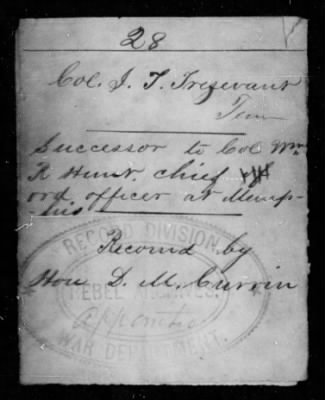 28
Col. J. T. Trezevant
Tenn
Successor to Col Wm
R Hunt, chief
ord officer at Memp-
his
Recomd by
Hon D. M. Currin
RECORD DIVISION
REBEL ARCHIVES.
Appointed
WAR DEPARTMENT.